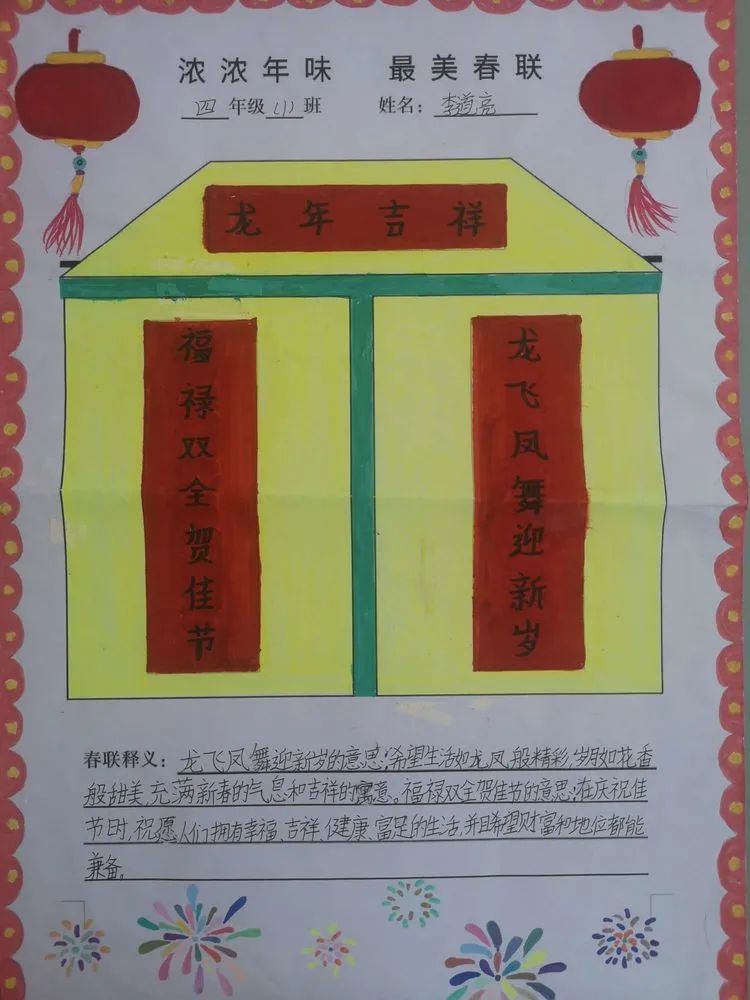 浓浓年味 最美春联
四年级(1)班 姓名：李道亮
龙年吉祥
龙飞凤舞迎新岁
福禄双全贺佳节
春联释义：龙飞凤舞迎新岁的意思；希望生活如龙凤般精彩，岁月如花香
般甜美，充满新春的气息和吉祥的寓意。福禄双全贺佳节的意思；在庆祝佳
节时，祝愿人们拥有幸福、吉祥、健康、富足的生活，并且希望财富和地位都能
兼备。